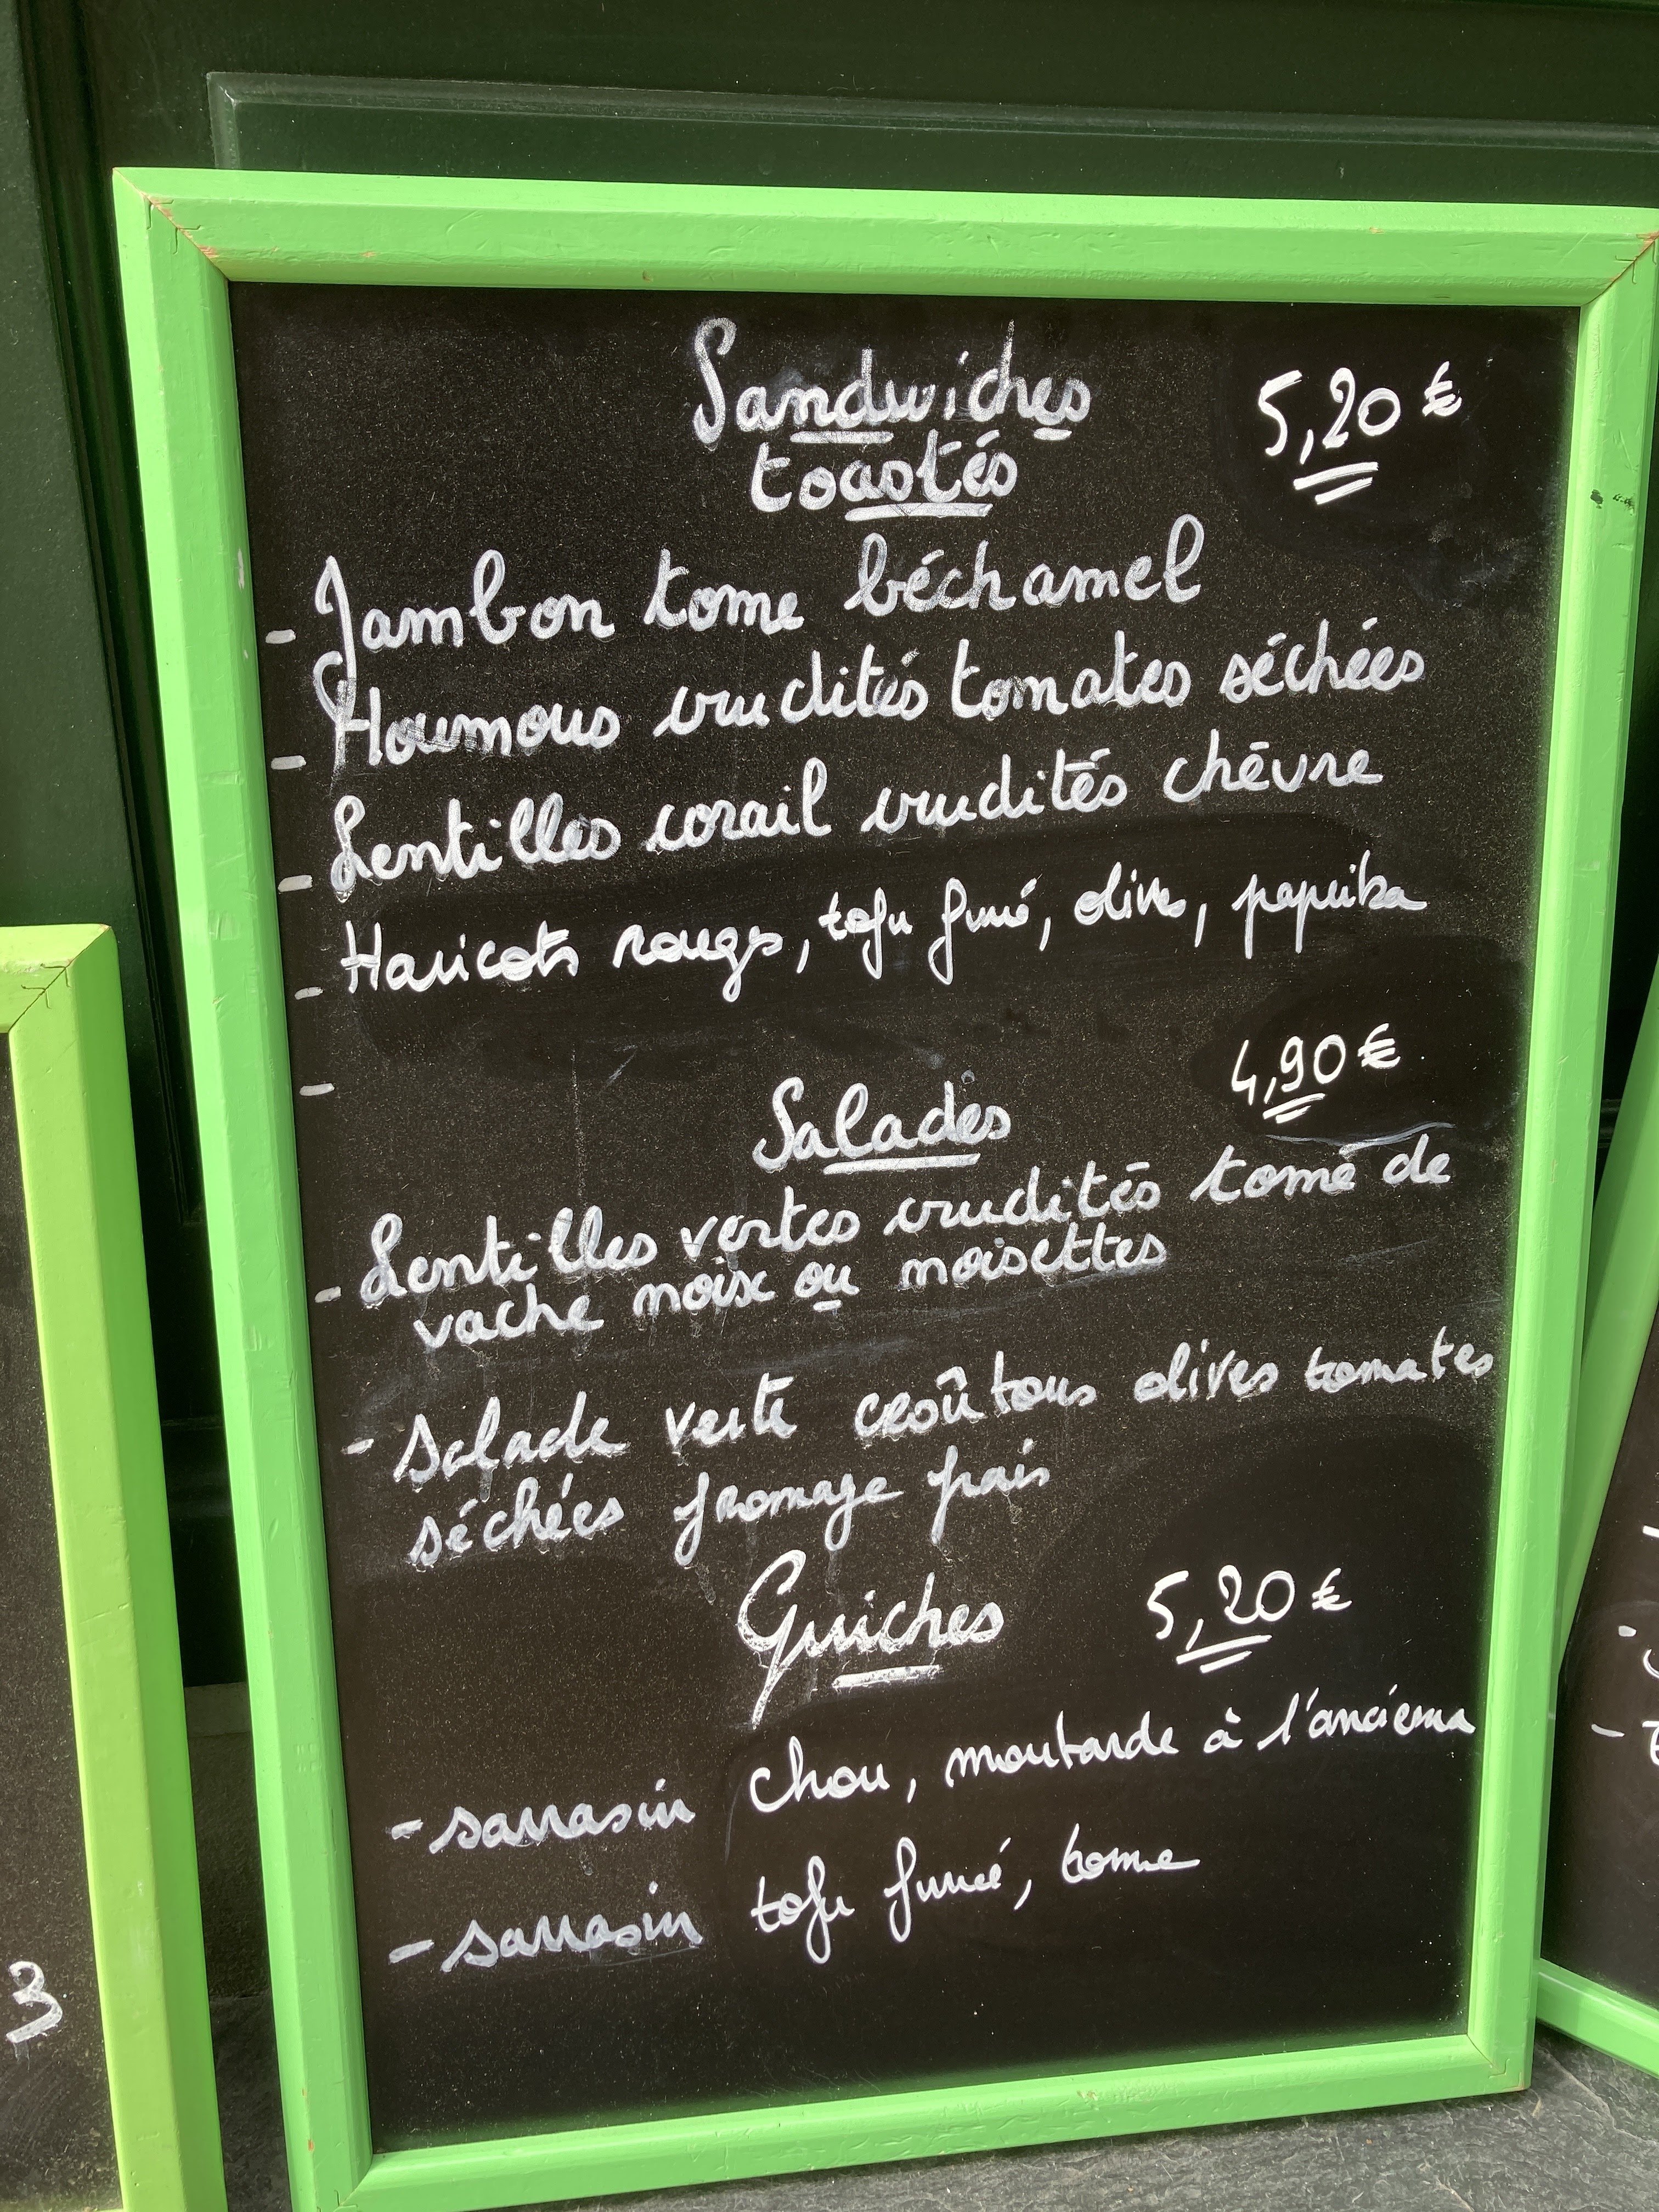 Sandwiches 5,20 €
toastés
- Jambon tome béchamel
- Houmous crudités tomates séchées
- Lentilles corail crudités chèvre
- Haricots rouges, tofu fumé, olives, paprika
-
Salades 4,90 €
- Lentilles vertes crudités tome de
vache noix ou noisettes
- salade verte croûtons olives tomates
séchées fromage frais
Quiches 5,20 €
- sarrasin chou, moutarde à l'ancienne
- sarrasin tofu fumé, tome
3